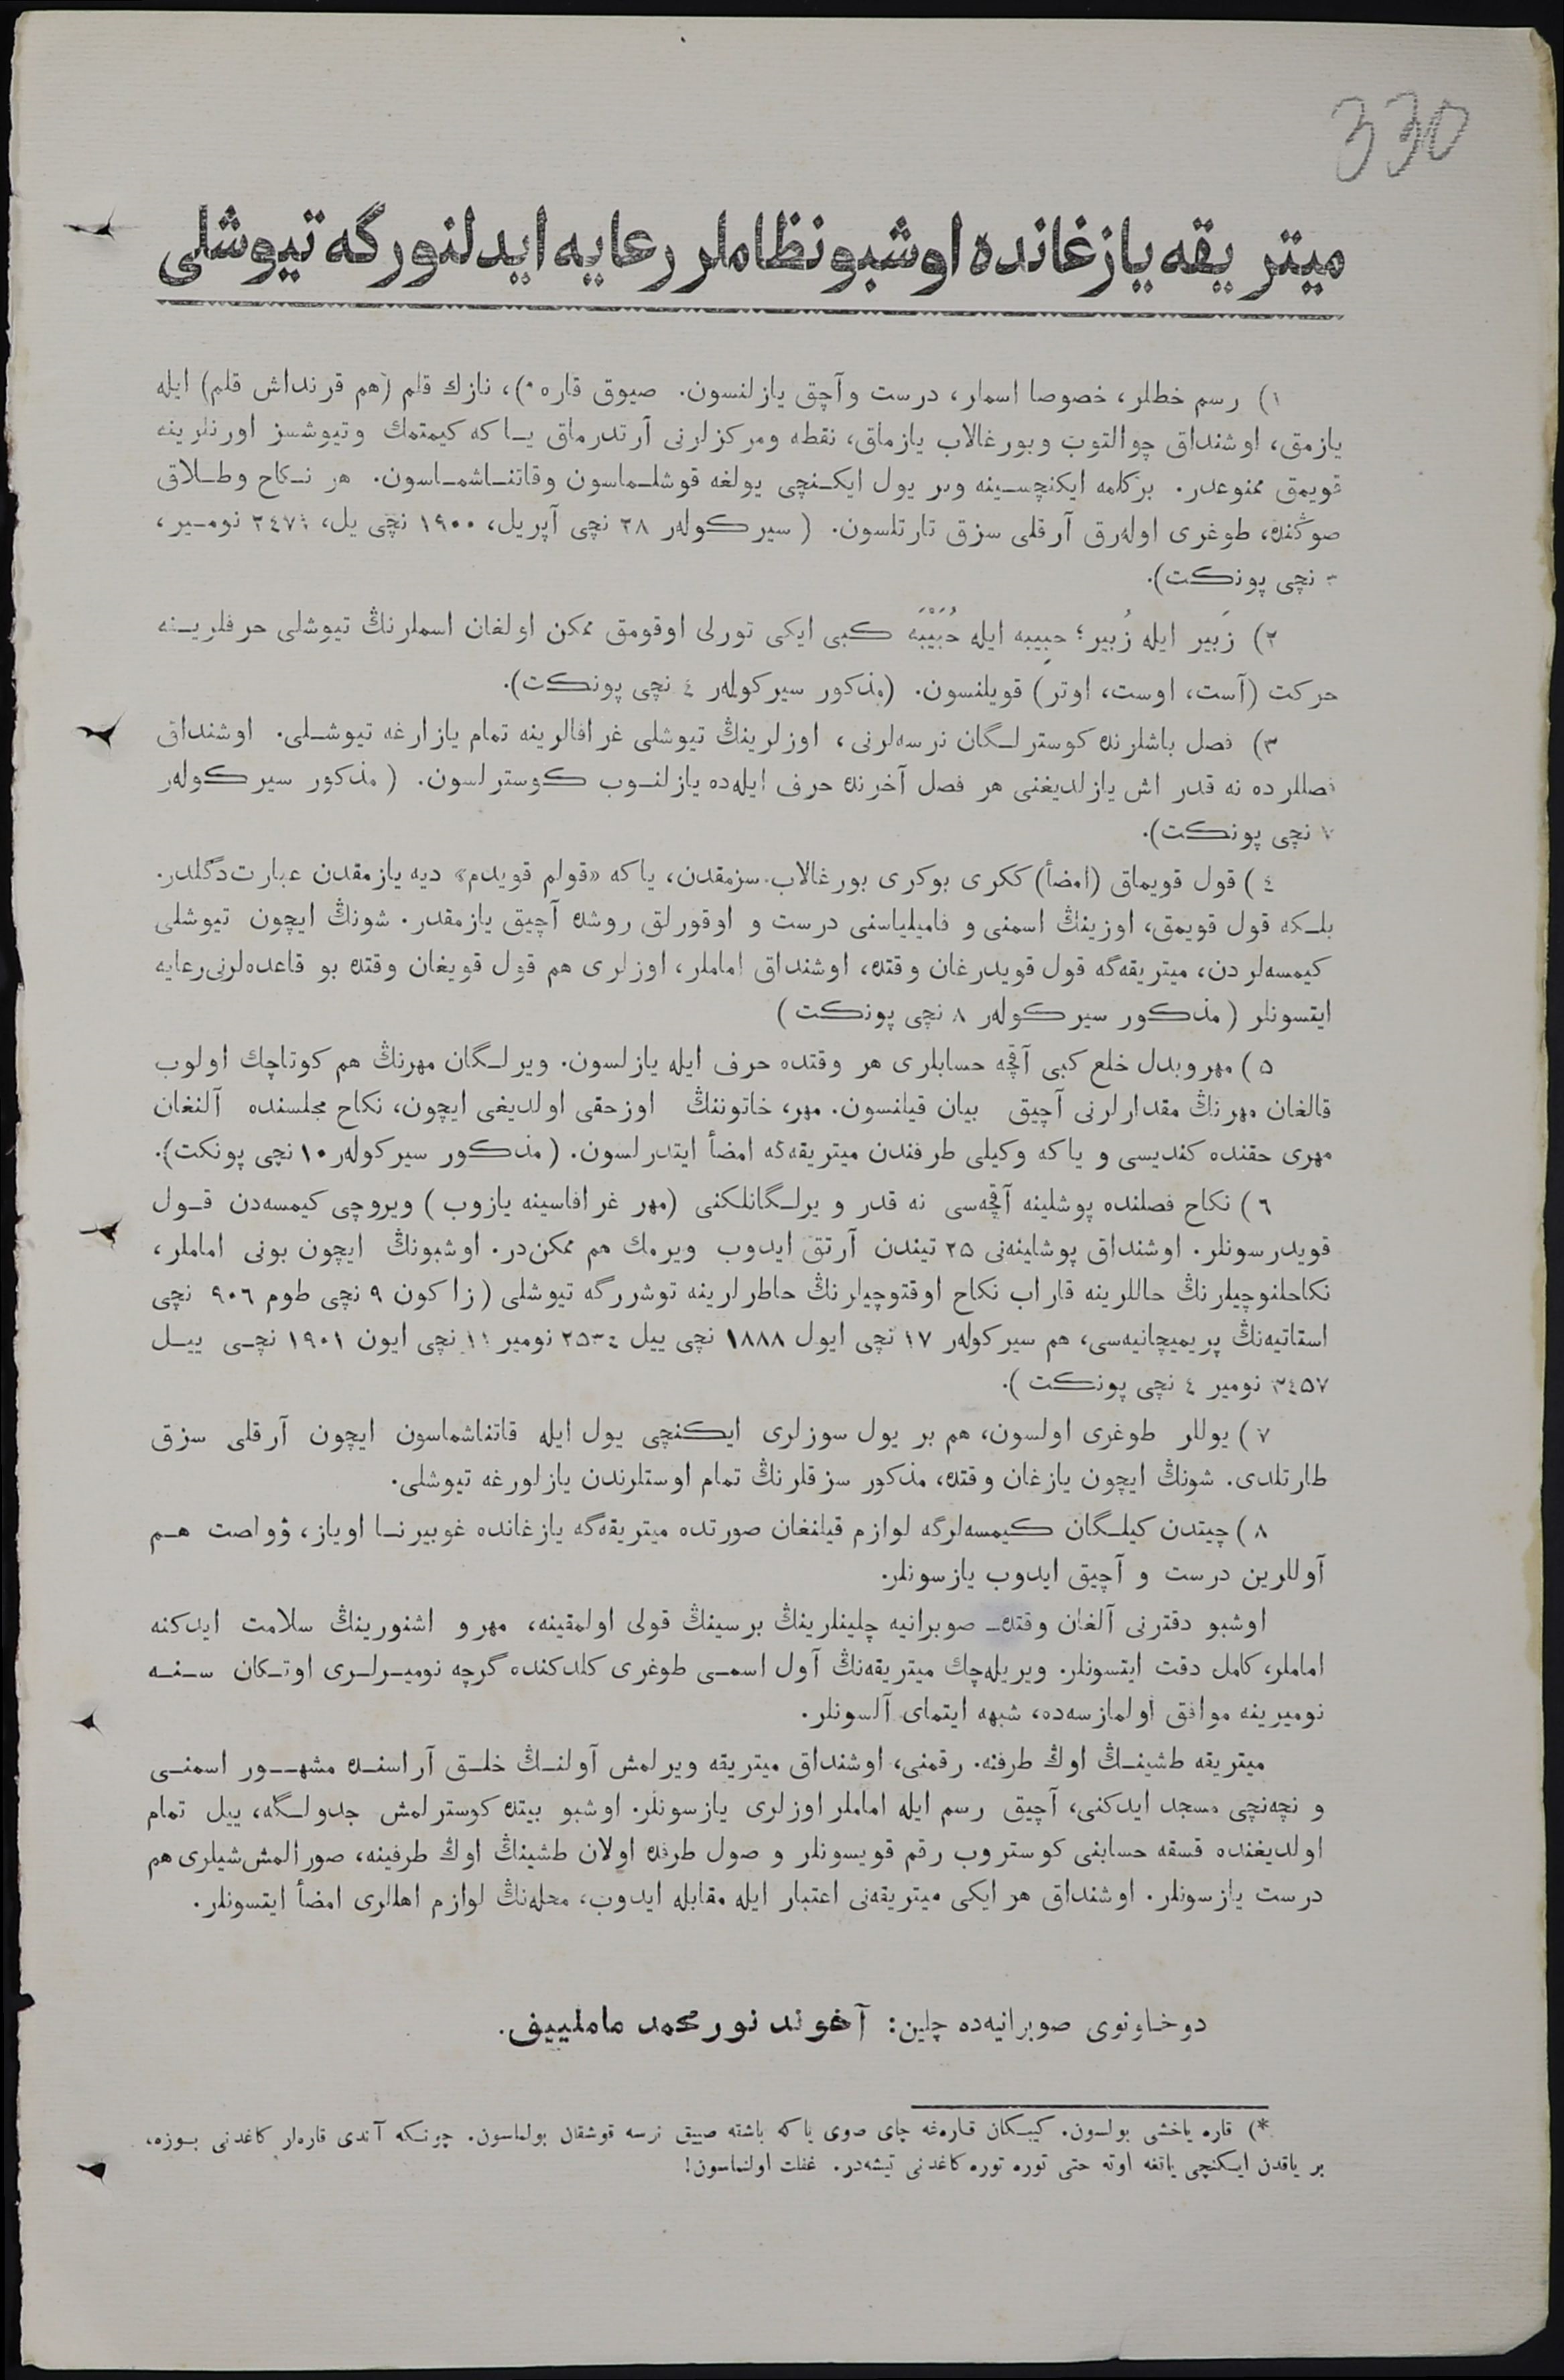 330
ميتريقه يازغانده اوشبو نظاملر رعايه ايدلنورگه تيوشلى
١) رسم خطلر، خصوصا اسملر، درست وآچق يازلنسون. صيوق قاره*)، نازك قلم (هم قرنداش قلم) ايله
يازمق، اوشنداق چوالتوب وبورغالاب يازماق، نقطه ومركزلرنى آرتدرماق يــاكه كيمتمك وتيوشسز اورنلرينه
قويمق ممنوعدر. بركلمه ايكنچســينه وبر يول ايكــنچى يولغه قوشلــماسون وقاتنــاشمــاسون. هر نــكاح وطــلاق
صوڭنده، طوغرى اولەرق آرقلى سزق تارتلسون. (سيركولەر ٢٨ نچى آپريل، ١٩٠٠ نچى يل، نومــير،
نچى پونكت).
٢) زَبير ايله زُبير؛ حبِيبه ايله حُبَيْبَه كبى ايكى تورلى اوقومق ممكن اولغان اسملرنڭ تيوشلى حرفلريــنه
حركت (آست، اوست، اوتر) قويلنسون. (مذكور سيركولەر ٤ نچى پونكت).
٣) فصل باشلرنده كوسترلــگان نرسەلرنى، اوزلرينڭ تيوشلى غرافالرينه تمام يازارغه تيوشــلى. اوشنداق
فصللرده نه قدر اش يازلديغنى هر فصل آخرنده حرف ايلەده يازلنــوب كوسترلسون. (مذكور سيركولەر
٧ نچى پونكت).
٤) قول قويماق (امضأ) ككرى بوكرى بورغالاب سزمقدن، ياكه «قولم قويدم» ديه يازمقدن عبارت دگلدر.
بلــكه قول قويمق، اوزينڭ اسمنى و فاميلياسنى درست و اوقورلق روشده آچيق يازمقدر. شونڭ ايچون تيوشلى
كيمسەلردن، ميتريقەگه قول قويدرغان وقتده، اوشنداق اماملر، اوزلرى هم قول قويغان وقتده بو قاعدەلرنى رعايه
ايتسونلر (مذكور سيركولەر ٨ نچى پونكت)
٥) مهر وبدل خلع كبى آقچه حسابلرى هر وقتده حرف ايله يازلسون. ويرلــگان مهرنڭ هم كوتاچك اولوب
قالغان مهرنڭ مقدارلرنى آچيق بيان قيلنسون. مهر، خاتوننڭ اوزحقى اولديغى ايچون، نكاح مجلسنده آلنغان
مهرى حقنده كنديسى و ياكه وكيلى طرفندن ميتريقەگه امضأ ايتدرلسون. (مذكور سيركولەر ١٠ نچى پونكت).
٦) نكاح فصلنده پوشلينه آقچەسى نه قدر و يرلــگانلكنى (مهر غرافاسينه يازوب) ويروچى كيمسەدن قــول
قويدرسونلر. اوشنداق پوشلينەنى ٢٥ تيندن آرتق ايدوب ويرمك هم ممكن‌در. اوشبونڭ ايچون بونى اماملر،
نكاحلنوچيلرنڭ حاللرينه قاراب نكاح اوقتوچيلرنڭ خاطرلرينه توشررگه تيوشلى (زاكون ٩ نچى طوم ٩٠٦ نچى
استاتيەنڭ پريميچانيەسى، هم سيركولەر ١٧ نچى ايول ١٨٨٨ نچى ييل ٢٥٣٤ نومير ١١ نچى ايون ١٩٠١ نچــى ييــل
٣٤٥٧ نومير ٤ نچى پونكت).
٧) يوللر طوغرى اولسون، هم بر يول سوزلرى ايكنچى يول ايله قاتناشماسون ايچون آرقلى سزق
طارتلدى. شونڭ ايچون يازغان وقتده، مذكور سزقلرنڭ تمام اوستلرندن يازلورغه تيوشلى.
٨) چيتدن كيلــگان كيمسەلرگه لوازم قيلنغان صورتده ميتريقەگه يازغانده غوبيرنــا اوياز، وواصت هــم
آوللرين درست و آچيق ايدوب يازسونلر.
اوشبو دفترنى آلغان وقتده صوبرانيه چلينلرينڭ برسينڭ قولى اولمقينه، مهر و اشنورينڭ سلامت ايدكنه
اماملر، كامل دقت ايتسونلر. ويريلەچك ميتريقەنڭ آول اسمــى طوغرى كلدكنده گرچه نوميــرلــرى اوتــكان ســنــه
نوميرينه موافق اولمازسەده، شبهه ايتماى آلسونلر.
ميتريقه طشينــڭ اوڭ طرفنه. رقمنى، اوشنداق ميتريقه ويرلمش آولنــڭ خلــق آراسنــده مشهــور اسمنــى
و نچەنچى مسجد ايدكنى، آچيق رسم ايله اماملر اوزلرى يازسونلر. اوشبو بيتده كوسترلمش جدولــگه، ييل تمام
اولديغنده قسقه حسابنى كوستروب رقم قويسونلر و صول طرفده اولان طشينڭ اوڭ طرفينه، صورالمش شيلرى هم
درست يازسونلر. اوشنداق هر ايكى ميتريقەنى اعتبار ايله مقابله ايدوب، محلەنڭ لوازم اهللرى امضأ ايتسونلر.
دوخاونوى صوبرانيەده چلين: آخوند نور محمد ماملييف.
*) قاره ياخشى بولسون. كيبــكان قارەغه چاى صوى ياكه باشقه صييق نرسه قوشقان بولماسون. چونــكه آندى قارەلر كاغدنى بــوزه،
بر ياقدن ايــكنچى ياقغه اوته حتى توره توره كاغدنى تيشەدر. غفلت اولنماسون!